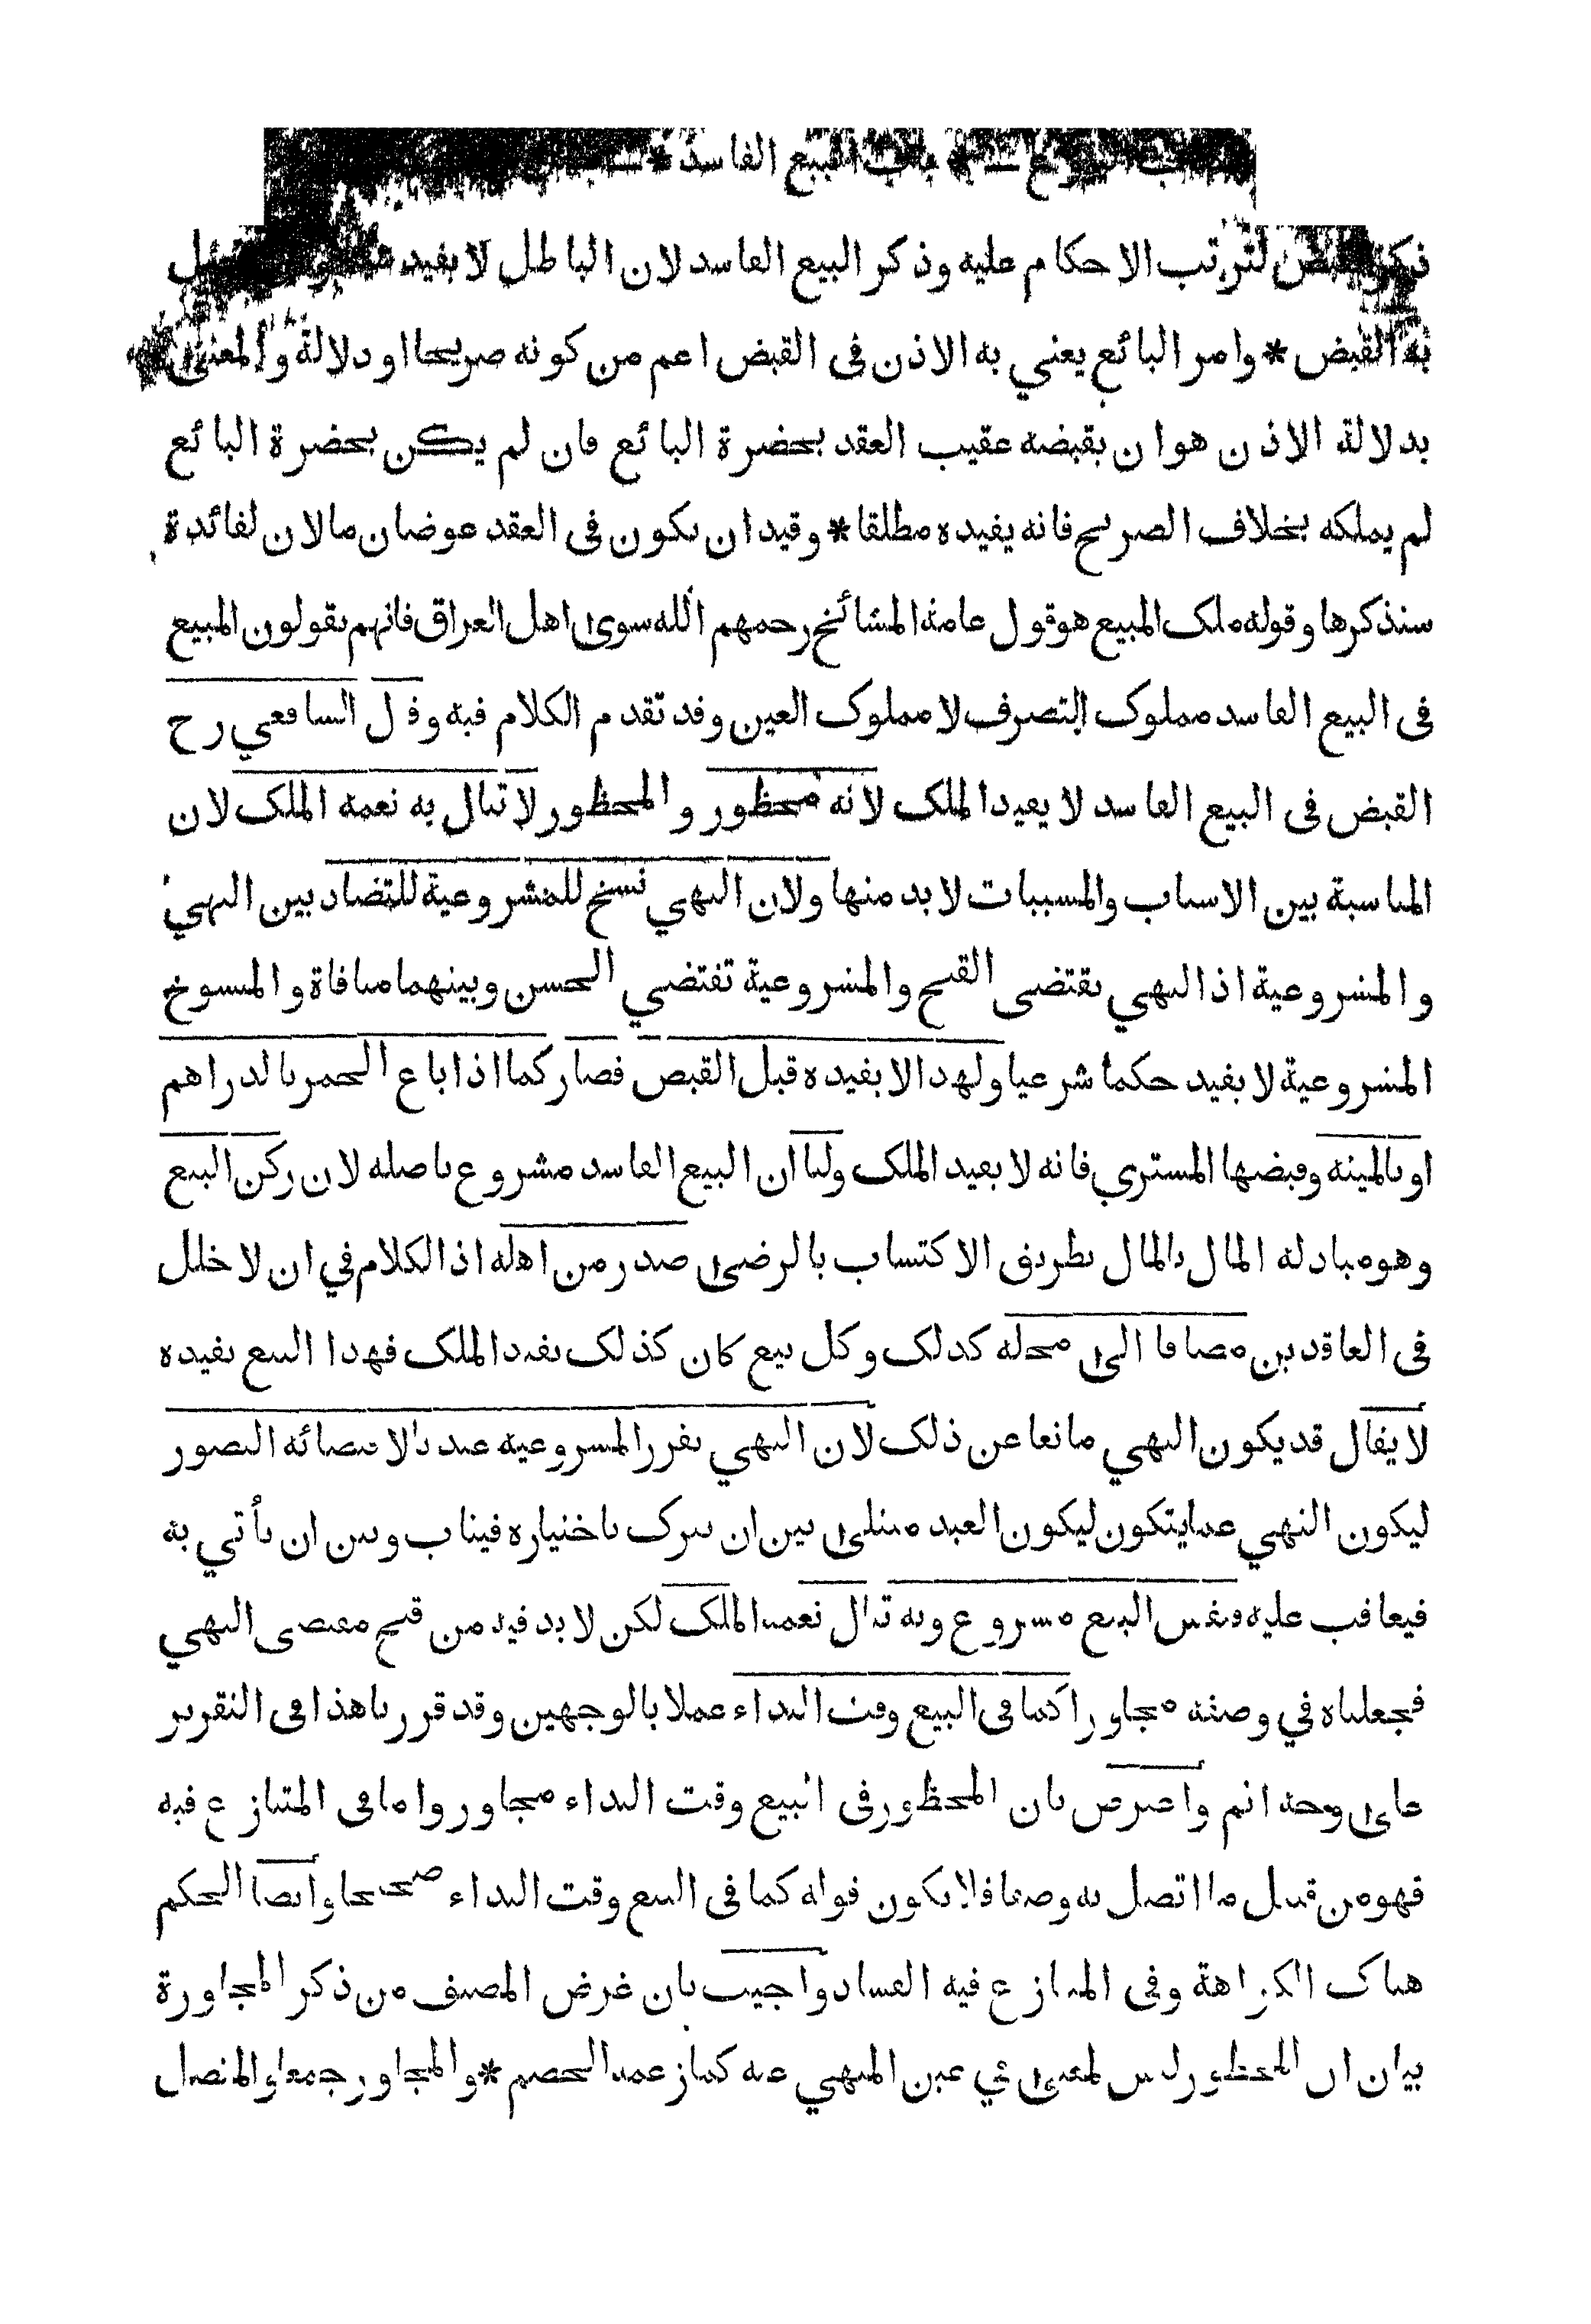 باب البيع الفاسد
ذكر لترتب الاحكام عليه وذكر البيع الفاسد لان الباطل لا يفيد
به القبض * وامر البائع يعني به الاذن في القبض اعم من كونه صريحا او دلالة والمعنى
بدلالة الاذن هو ان يقبضه عقيب العقد بحضرة البائع فان لم يكن بحضرة البائع
لم يملكه بخلاف الصريح فانه يفيده مطلقا * وقيد ان يكون في العقد عوضان مالان لفائدة
سنذكرها وقوله ملك المبيع هو قول عامة المشائخ رحمهم الله سوى اهل العراق فانهم يقولون المبيع
في البيع الفاسد مملوك التصرف لا مملوك العين وقد تقدم الكلام فيه وقال الشافعي رح
القبض في البيع الفاسد لا يفيد الملك لانه محظور والمحظور لا تنال به نعمة الملك لان
المناسبة بين الاسباب والمسببات لا بد منها ولان النهي نسخ للمشروعية للتضاد بين النهي
والمشروعية اذ النهي يقتضى القبح والمشروعية تقتضي الحسن وبينهما منافاة والمنسوخ
المشروعية لا يفيد حكما شرعيا ولهذا لا يفيده قبل القبض فصار كما اذا باع الخمر بالدراهم
او بالميتة وقبضها المشتري فانه لا يفيد الملك ولنا ان البيع الفاسد مشروع باصله لان ركن البيع
وهو مبادلة المال بالمال بطريق الاكتساب بالرضى صدر من اهله اذ الكلام في ان لا خلل
في العاقدين مضافا الى محله كذلك وكل بيع كان كذلك يفيد الملك فهذا البيع يفيده
لا يقال قد يكون النهي مانعا عن ذلك لان النهي يقرر المشروعية عندنا لاقتضائه التصور
ليكون النهي عما يتكون ليكون العبد مبتلى بين ان يترك باختياره فيثاب وبين ان يأتي به
فيعاقب عليه فنفس البيع مشروع وبه تنال نعمة الملك لكن لا بد فيه من قبح مقتضى النهي
فجعلناه في وصفه مجاورا كما في البيع وقت النداء عملا بالوجهين وقد قررنا هذا في التقرير
على وجه اتم واعترض بان المحظور في البيع وقت النداء مجاور واما في المتنازع فيه
فهو من قبيل ما اتصل به وصفا فلا يكون قوله كما في البيع وقت النداء صحيحا وايضا الحكم
هناك الكراهة وفي المتنازع فيه الفساد واجيب بان غرض المصنف من ذكر المجاورة
بيان ان المحظور ليس لمعنى في عين المنهي عنه كما زعمه الخصم * والمجاور جمعا والمتصل